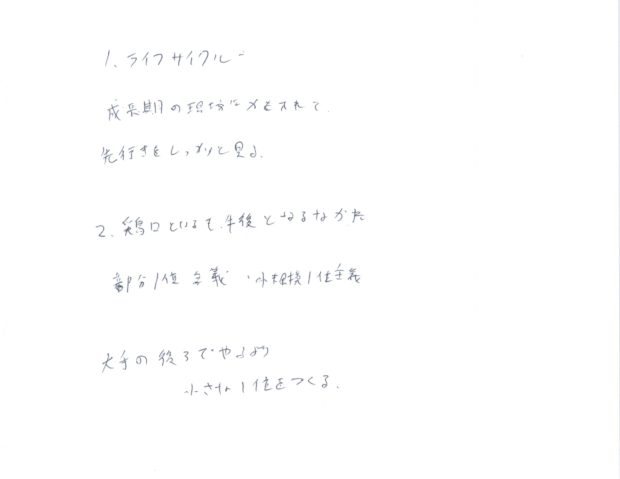 1、ライフサイクルー
成長期の現場に力を入れて、
先行きをしっかりと見る。
2、鶏口といるて、牛後となるなかれ
部分1位主義・小規模1位主義
大手の後ろでやるより
小さな1位をつくる。